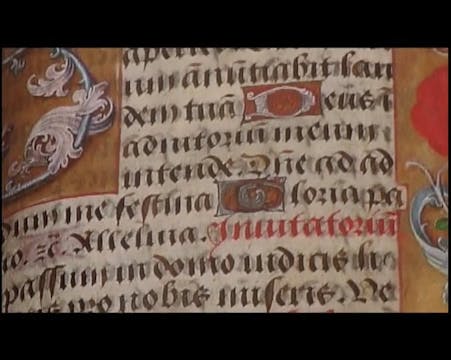 um ānūtiabit lau
dem tuā Deus ī
adiutoriū meum
intende. Dn̄e ad ad
dum me festina Gloria pa
Alleluia. Inuitatoriū
passum in domo iudicis
pro nobis miseris. Ve